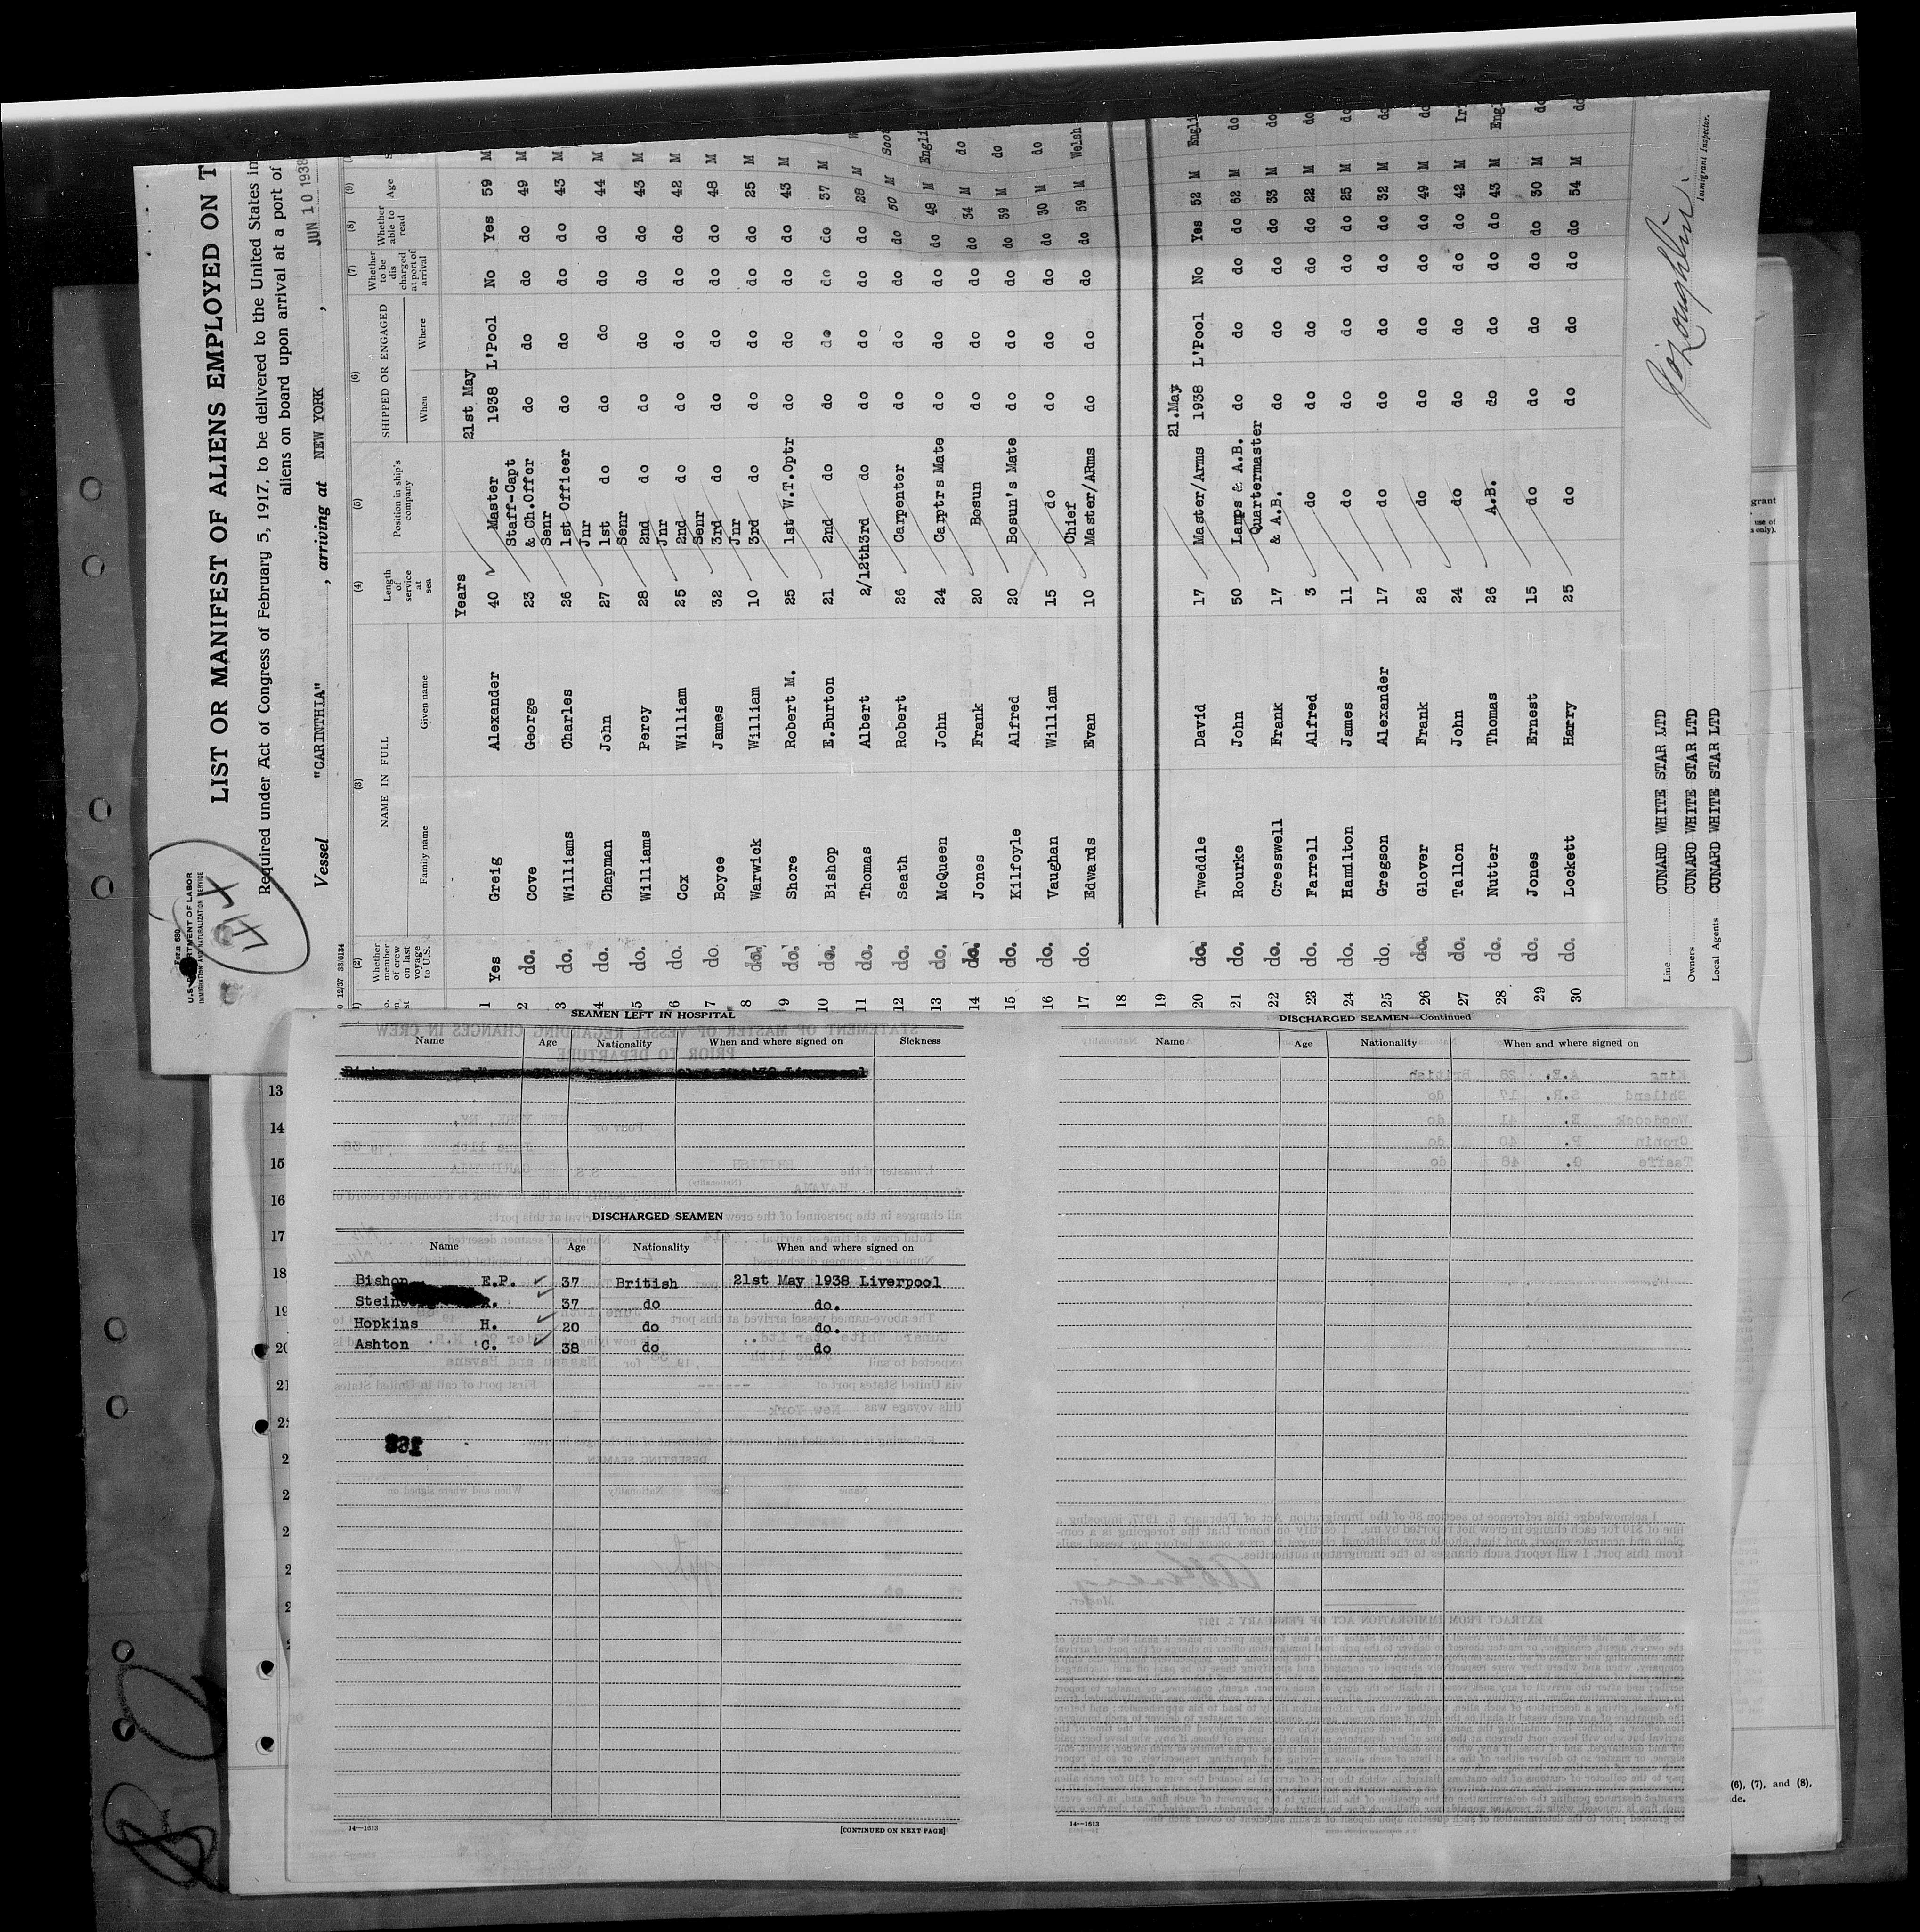 Form 680
U.S. DEPARTMENT OF LABOR
IMMIGRATION AND NATURALIZATION SERVICE
LIST OR MANIFEST OF ALIENS EMPLOYED ON T
Required under Act of Congress of February 5, 1917, to be delivered to the United States im
aliens on board upon arrival at a port of
Vessel "CARINTHIA" , arriving at NEW YORK , JUN 10 1938
12/37 33/6134
(2) (3) (4) (5) (6) (7) (8) (9)
Whether member of crew on last voyage to U.S. NAME IN FULL Family name Given name Length of service at sea Position in ship's company SHIPPED OR ENGAGED When Where Whether to be dis charged at port of arrival Whether able to read Age
Years 21st May
1 Yes Greig Alexander 40 Master 1938 L'Pool No Yes 59 M
2 do. Cove George 23 Staff-Capt & Ch.Offcr do do do do 49 M
3 do. Williams Charles 26 Senr 1st Officer do do do do 43 M
4 do. Chapman John 27 Jnr 1st do do do do do 44 M
5 do. Williams Percy 28 Senr 2nd do do do do do 43 M
6 do. Cox William 25 Jnr 2nd do do do do do 42 M
7 do Boyce James 32 Senr 3rd do do do do do 48 M
8 do. Warwick William 10 Jnr 3rd do do do do do 25 M
9 do. Shore Robert M. 25 1st W.T.Optr do do do do 43 M
10 do. Bishop E.Burton 21 2nd do do do do do 37 M
11 do. Thomas Albert 2/12th 3rd do do do do do 28 M
12 do. Seath Robert 26 Carpenter do do do do 50 M
13 do. McQueen John 24 Carptrs Mate do do do do 48 M Engli
14 do. Jones Frank 20 Bosun do do do do 34 M do
15 do. Kilfoyle Alfred 20 Bosun's Mate do do do do 39 M do
16 do. Vaughan William 15 do do do do do 30 M do
17 do. Edwards Evan 10 Chief Master/ARms do do do do 59 M Welsh
18
19 21.May
20 do. Tweddle David 17 Master/Arms 1938 L'Pool No Yes 52 M Engli
21 do. Rourke John 50 Lamps & A.B. do do do do 62 M do
22 do. Cresswell Frank 17 Quartermaster & A.B. do do do do 33 M do
23 do. Farrell Alfred 3 do do do do do 22 M do
24 do. Hamilton James 11 do do do do do 25 M do
25 do. Gregson Alexander 17 do do do do do 32 M do
26 do. Glover Frank 26 do do do do do 49 M do
27 do. Tallon John 24 do do do do do 42 M Iri
28 do. Nutter Thomas 26 A.B. do do do do 43 M Engl
29 do. Jones Ernest 15 do do do do do 30 M do
30 do. Lockett Harry 25 do do do do do 54 M do
Line CUNARD WHITE STAR LTD
Owners CUNARD WHITE STAR LTD
Local Agents CUNARD WHITE STAR LTD
Immigrant Inspector.
SEAMEN LEFT IN HOSPITAL
Name Age Nationality When and where signed on Sickness
DISCHARGED SEAMEN
Name Age Nationality When and where signed on
Bishop E.P. 37 British 21st May 1938 Liverpool
37 do do.
Hopkins H. 20 do do.
Ashton C. 38 do do
14—1613 [CONTINUED ON NEXT PAGE]
DISCHARGED SEAMEN—Continued
Name Age Nationality When and where signed on
14—1613
13
14
15
16
17
18
19
20
21
grant
use of
only).
(6), (7), and (8),
de.